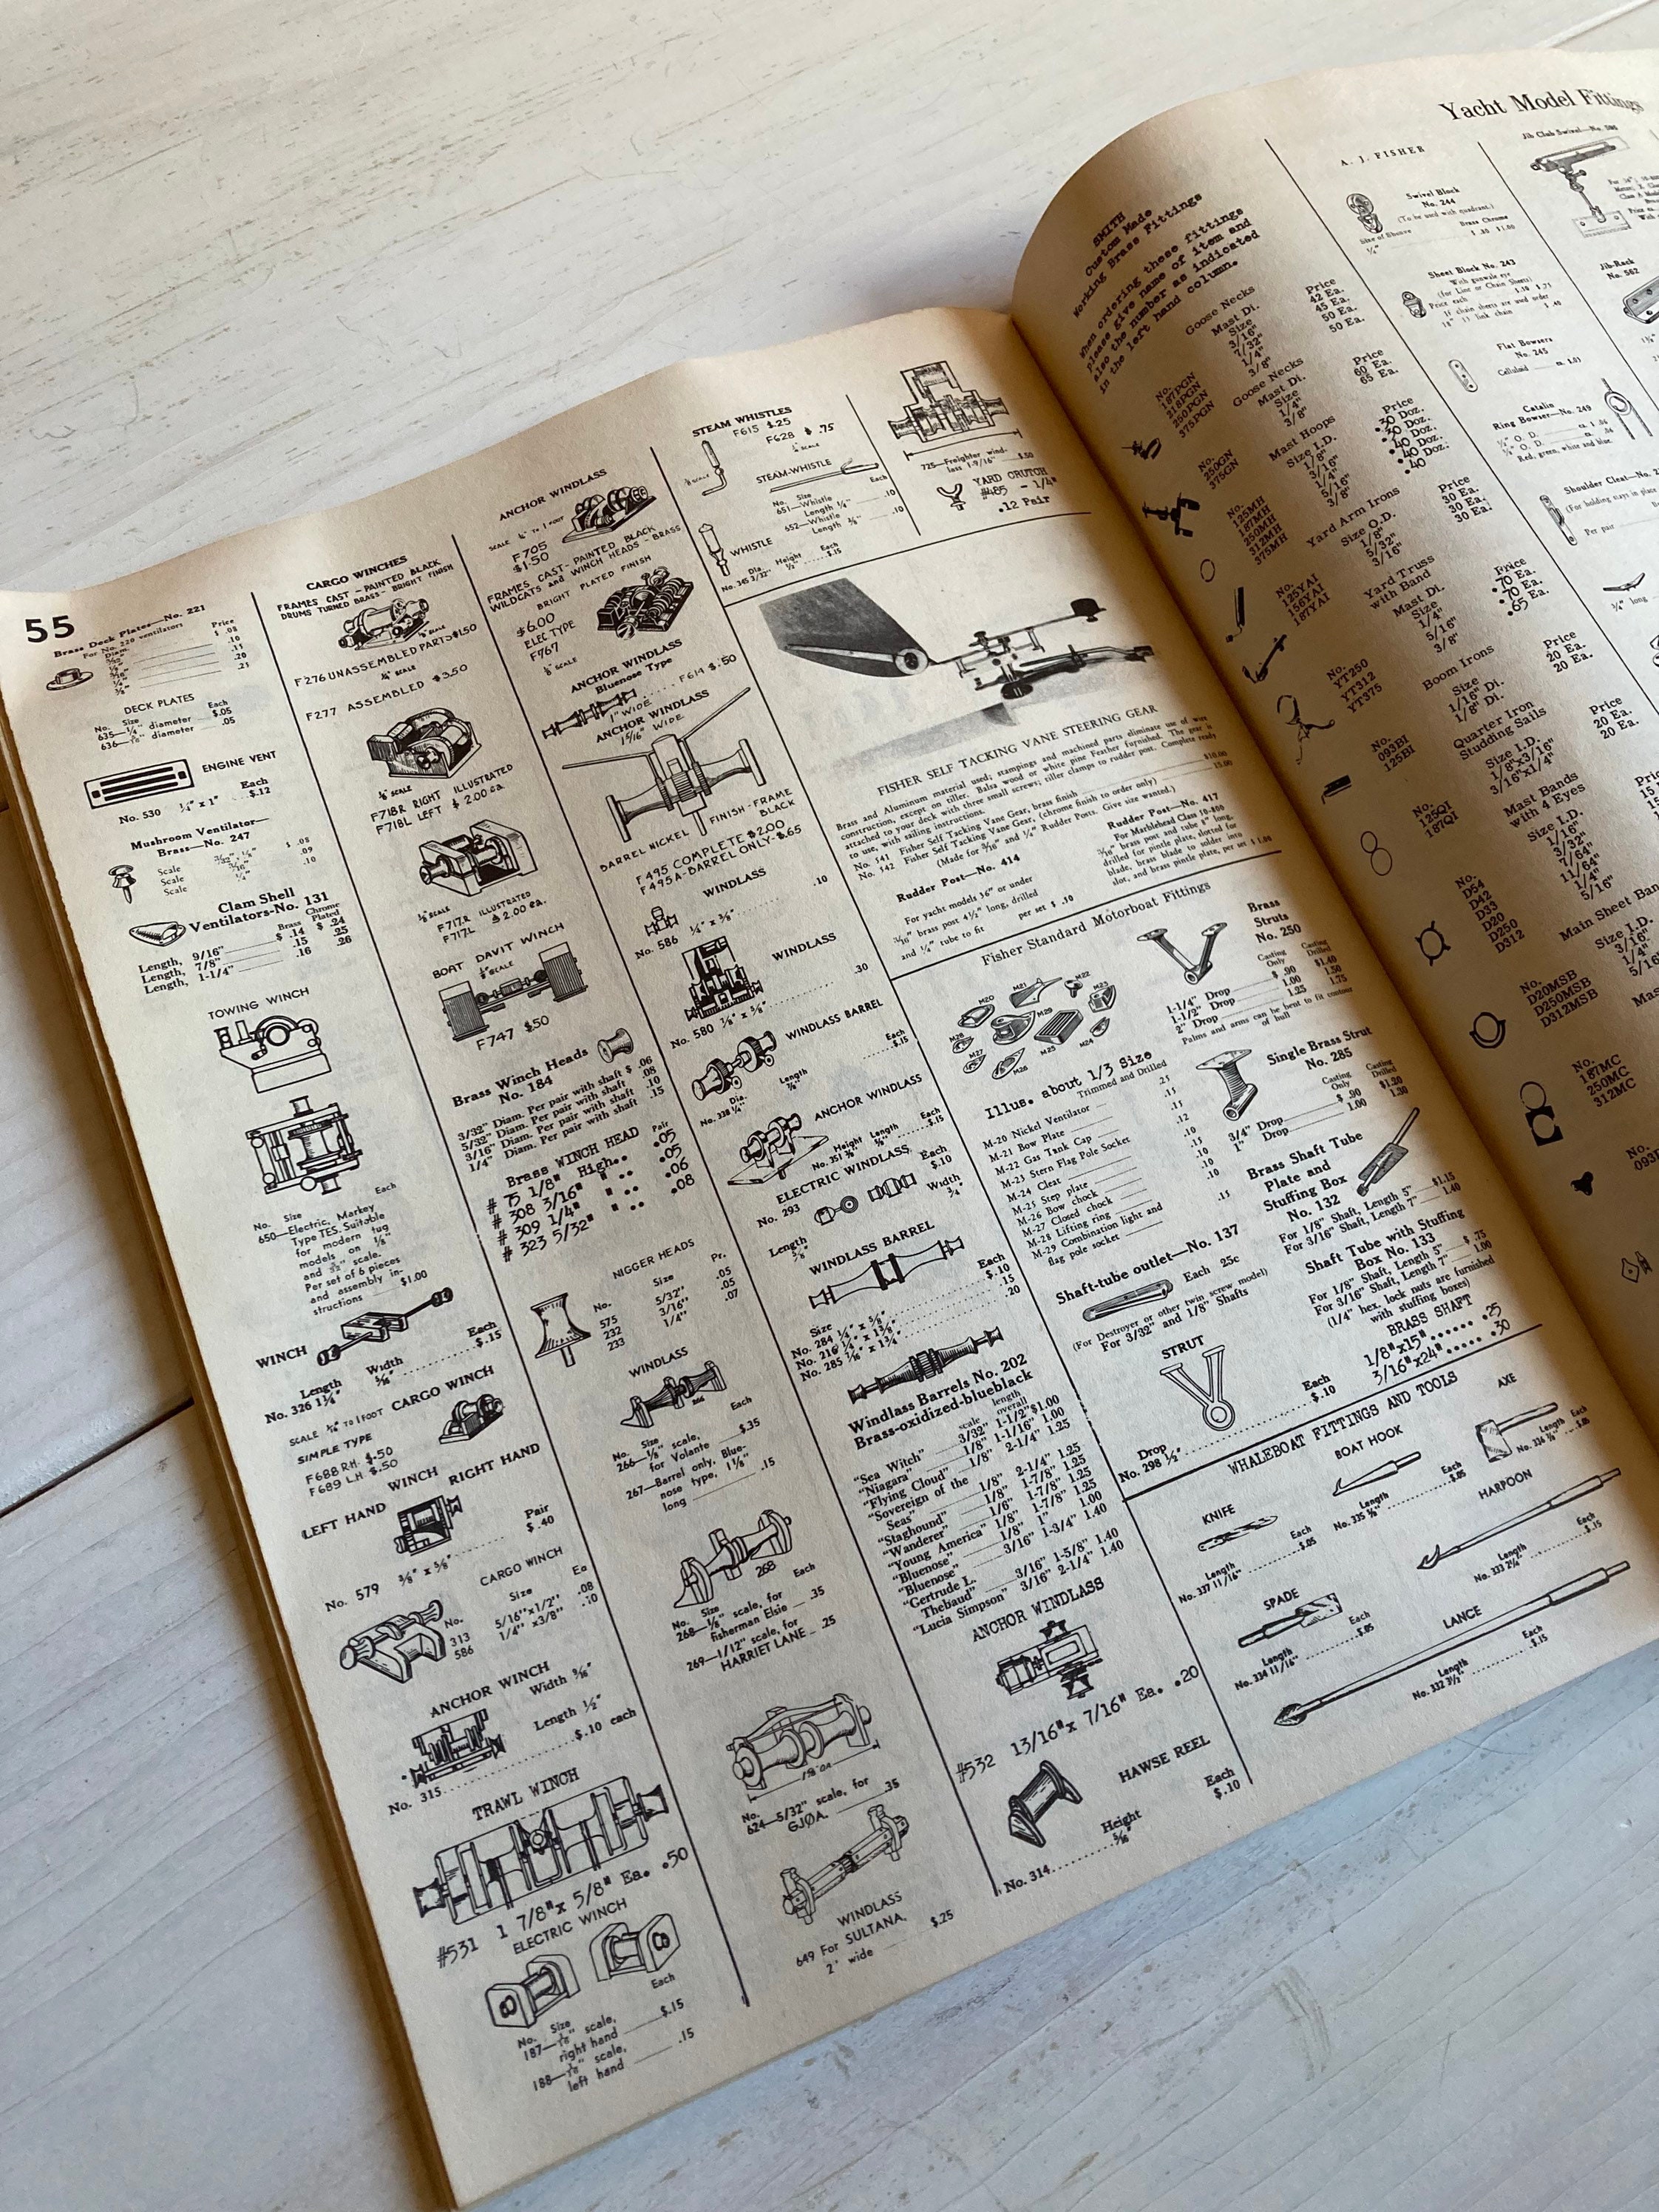 55
Brass Deck Plates—No. 221
For No. 220 ventilators
Diam. Price
$ .08
.10
.15
.20
.25
DECK PLATES
No. Size Each
635—¼" diameter $.05
636— diameter .05
ENGINE VENT
Each
No. 530 ¼" x 1" $.12
Mushroom Ventilator—
Brass—No. 247
Scale $ .08
Scale .09
Scale ¼" .10
Clam Shell
Ventilators-No. 131
Brass Chrome Plated
Length, 9/16" $ .14 $ .24
Length, 7/8" .15 .25
Length, 1-1/4" .16 .26
TOWING WINCH
Each
No. Size
650—Electric, Markey
Type TES. Suitable
for modern tug
models on ⅛"
and scale.
Per set of 6 pieces
and assembly in-
structions $1.00
WINCH
Length Width Each
No. 326 1¼" $.15
SCALE TO 1 FOOT CARGO WINCH
SIMPLE TYPE
F688 R.H. $.50
F689 L.H. $.50
WINCH
LEFT HAND RIGHT HAND
Pair
No. 579 ⅜" x ⅜" $.40
CARGO WINCH
No. Size Ea
313 5/16"x1/2" .08
586 1/4" x3/8" .10
ANCHOR WINCH
Width
Length ½"
No. 315 $.10 each
TRAWL WINCH
#531 1 7/8"x 5/8" Ea. .50
ELECTRIC WINCH
Each
No. Size
187— scale,
right hand $.15
188— scale,
left hand .15
CARGO WINCHES
FRAMES CAST - PAINTED BLACK
DRUMS TURNED BRASS - BRIGHT FINISH
F276 UNASSEMBLED PARTS $1.50
¼" SCALE
F277 ASSEMBLED $3.50
⅛" SCALE
F718R RIGHT ILLUSTRATED
F718L LEFT $ 2.00 ea.
⅛" SCALE
F717R ILLUSTRATED
F717L $ 2.00 ea.
BOAT DAVIT WINCH
SCALE
F747 $.50
Brass Winch Heads
No. 184
3/32" Diam. Per pair with shaft $ .06
5/32" Diam. Per pair with shaft .08
3/16" Diam. Per pair with shaft .10
1/4" Diam. Per pair with shaft .15
Brass WINCH HEAD Pair
# 75 1/8" High.. .05
# 308 3/16" " .. .05
# 309 1/4" " .. .06
# 323 5/32" " .. .08
NIGGER HEADS
No. Size Pr.
575 5/32" .05
232 3/16" .05
233 1/4" .07
WINDLASS
266
No. Size Each
266—⅛" scale,
for Volante $.35
267—Barrel only, Blue-
nose type, 1⅛"
long .15
268
No. Size Each
268—⅛" scale, for
fisherman Elsie .35
269—1/12" scale, for
HARRIET LANE .25
No.
624—5/32" scale, for
GJØA. .35
WINDLASS
649 For SULTANA,
2" wide $.25
ANCHOR WINDLASS
SCALE ¼" TO 1 FOOT
F705
$1.50
FRAMES CAST - PAINTED BLACK
WILDCATS and WINCH HEADS - BRASS
BRIGHT PLATED FINISH
$6.00
ELEC TYPE
F767
⅛" SCALE
ANCHOR WINDLASS
Bluenose Type
F614 $.50
1" WIDE
ANCHOR WINDLASS
1 9/16" WIDE
BARREL NICKEL FINISH - FRAME BLACK
F495 COMPLETE $2.00
F495A - BARREL ONLY - $.65
WINDLASS
No. 586 ¼" x ⅜" .10
WINDLASS
No. 580 ⅝" x ⅝" .30
WINDLASS BARREL
Dia. Length Each
No. 328 ¼" $.15
ANCHOR WINDLASS
Height Length Each
No. 351 $.15
ELECTRIC WINDLASS
Length Width Each
No. 293 ¾" $.10
WINDLASS BARREL
Size Each
No. 284 $.10
No. 216 .15
No. 285 .20
Windlass Barrels No. 202
Brass-oxidized-blueblack
scale length overall
"Sea Witch" 3/32" 1-1/2" $1.00
"Niagara" 1/8" 1-1/16" 1.00
"Flying Cloud" 1/8" 2-1/4" 1.25
"Sovereign of the
Seas" 1/8" 2-1/4" 1.25
"Staghound" 1/8" 1-7/8" 1.25
"Wanderer" 1/6" 1-7/8" 1.25
"Young America" 1/8" 1-7/8" 1.25
"Bluenose" 1/8" 1" 1.00
"Bluenose" 3/16" 1-3/4" 1.40
"Gertrude L.
Thebaud" 3/16" 1-5/8" 1.40
"Lucia Simpson" 3/16" 2-1/4" 1.40
ANCHOR WINDLASS
#532 13/16"x 7/16" Ea. .20
HAWSE REEL
Height Each
No. 314 $.10
STEAM WHISTLES
F615 $.25
F628 $.75
STEAM-WHISTLE
No. Size Each
651—Whistle
Length ¼" .10
652—Whistle
Length .10
WHISTLE
Dia. Height Each
No. 345 3/32" $.15
725—Freighter wind-
lass 1-9/16" $.50
YARD CRUTCH
#485 - 1/4"
.12 Pair
FISHER SELF TACKING VANE STEERING GEAR
Brass and Aluminum material used; stampings and machined parts eliminate use of wire
construction, except on tiller. Balsa wood or white pine Feather furnished. The gear is
attached to your deck with three small screws; tiller clamps to rudder post. Complete ready
to use, with sailing instructions.
No. 141 Fisher Self Tacking Vane Gear, brass finish $10.00
No. 142 Fisher Self Tacking Vane Gear, (chrome finish to order only) 15.00
(Made for 3/16" and ¼" Rudder Posts. Give size wanted.)
Rudder Post—No. 414
For yacht models 36" or under
3/16" brass post 4½" long, drilled
and ¼" tube to fit per set $ .10
Rudder Post—No. 417
For Marblehead Class
brass post and tube 6" long,
drilled for pintle plate, slotted for
blade, brass blade to solder into
slot, and brass pintle plate, per set $ 1.00
Fisher Standard Motorboat Fittings
M20 M21 M22 M23
M29 M28 M25 M24
M27 M26
Illus. about 1/3 Size
Trimmed and Drilled
M-20 Nickel Ventilator .25
M-21 Bow Plate .15
M-22 Gas Tank Cap .12
M-23 Stern Flag Pole Socket .10
M-24 Cleat .15
M-25 Step plate .10
M-26 Bow chock .10
M-27 Closed chock
M-28 Lifting ring
M-29 Combination light and
flag pole socket .15
Shaft-tube outlet—No. 137
Each 25c
(For Destroyer or other twin screw model)
For 3/32" and 1/8" Shafts
STRUT
Drop Each
No. 298 ½" $.10
Brass
Struts
No. 250
Casting Only Casting Drilled
1-1/4" Drop $ .90 $1.40
1-1/2" Drop 1.00 1.50
2" Drop 1.25 1.75
Palms and arms can be bent to fit contour
of hull
Single Brass Strut
No. 285
Casting Only Casting Drilled
3/4" Drop $ .90 $1.20
1" Drop 1.00 1.30
Brass Shaft Tube
Plate and
Stuffing Box
No. 132
For 1/8" Shaft, Length 5" $1.15
For 3/16" Shaft, Length 7" 1.40
Shaft Tube with Stuffing
Box No. 133
For 1/8" Shaft, Length 5" $ .75
For 3/16" Shaft, Length 7" 1.00
(1/4" hex. lock nuts are furnished
with stuffing boxes)
BRASS SHAFT
1/8"x15" .25
3/16"x24" .30
WHALEBOAT FITTINGS AND TOOLS
KNIFE
Length Each
No. 337 11/16" $.05
BOAT HOOK
Length Each
No. 335 $.05
AXE
Length Each
No. 336 $.05
HARPOON
Length Each
No. 333 2¼" $.15
SPADE
Length Each
No. 334 11/16" $.05
LANCE
Length Each
No. 332 3½" $.15
Yacht Model Fittings
SMITH
Custom Made
Working Brass Fittings
When ordering these fittings
please give name of item and
also the number as indicated
in the left hand column.
Goose Necks
Mast Di.
No. Size Price
187PGN 3/16" 42 Ea.
218PGN 7/32" 45 Ea.
250PGN 1/4" 50 Ea.
375PGN 3/8" 50 Ea.
Goose Necks
Mast Di.
No. Size Price
250GN 1/4" 60 Ea.
375GN 3/8" 65 Ea.
Mast Hoops
No. Size I.D. Price
125MH 1/8" .30 Doz.
187MH 3/16" .30 Doz.
250MH 1/4" .40 Doz.
312MH 5/16" .40 Doz.
375MH 3/8" .40
Yard Arm Irons
No. Size O.D. Price
125YAI 1/8" 30 Ea.
156YAI 5/32" 30 Ea.
187YAI 3/16" 30 Ea.
Yard Truss
with Band
Mast Di.
No. Size Price
YT250 1/4" .70 Ea.
YT312 5/16" .70 Ea.
YT375 3/8" .65 Ea.
Boom Irons
No. Size
093BI 1/16" Di. 20 Ea.
125BI 1/8" Di. 20 Ea.
Quarter Iron
Studding Sails
No. Size I.D. Price
125QI 1/8"x3/16" 20 Ea.
187QI 3/16"x1/4" 20 Ea.
Mast Bands
with 4 Eyes
No. Size I.D.
D54 1/16"
D42 3/32"
D33 7/64"
D20 11/64"
D250 1/4"
D312 5/16"
Main Sheet
No. Size I.D.
D20MSB 3/16"
D250MSB 1/4"
D312MSB 5/16"
No.
187MC
250MC
312MC
No.
A. J. FISHER
Swivel Block
No. 244
(To be used with quadrant.)
Size of Sheave Brass Chrome
¼" $1.00
Sheet Block No. 243
With gunwale eye
(for Line or Chain Sheets)
Price each
If chain sheets are used order
18" link chain $ .40
Flat Bowsers
No. 245
Celluloid ea. $.03
Catalin
Ring Bowser—No. 249
O. D. ea. $ .06
O. D. ea. .06
Red, green, white and blue.
Shoulder Cleat—No.
(For holding stays in place
Per pair
Jib Club Swivel—No.
Jib-Rack
No. 562
¾" long